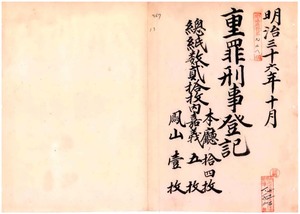 明治三十六年十月
重罪刑事登記
總紙數貳拾枚內
本廳拾四枚
嘉義五枚
鳳山壹枚